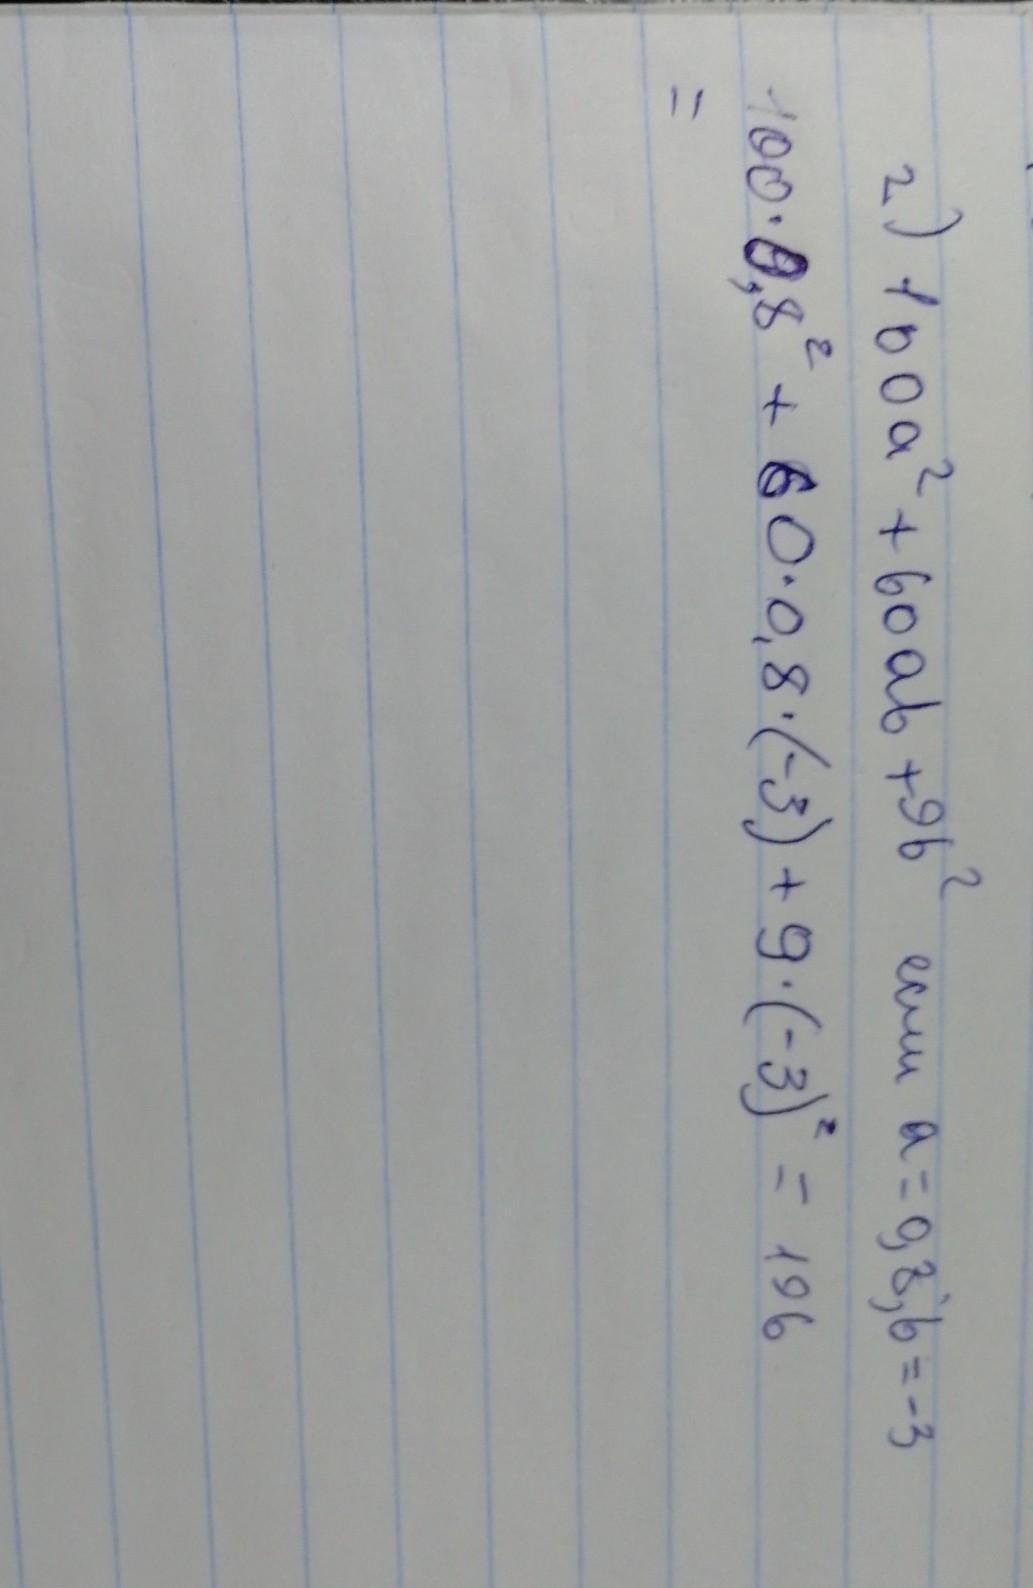 2) 100a² + 60ab + 9b² если a = 0,8; b = -3
100·0,8² + 60·0,8·(-3) + 9·(-3)² = 196
=